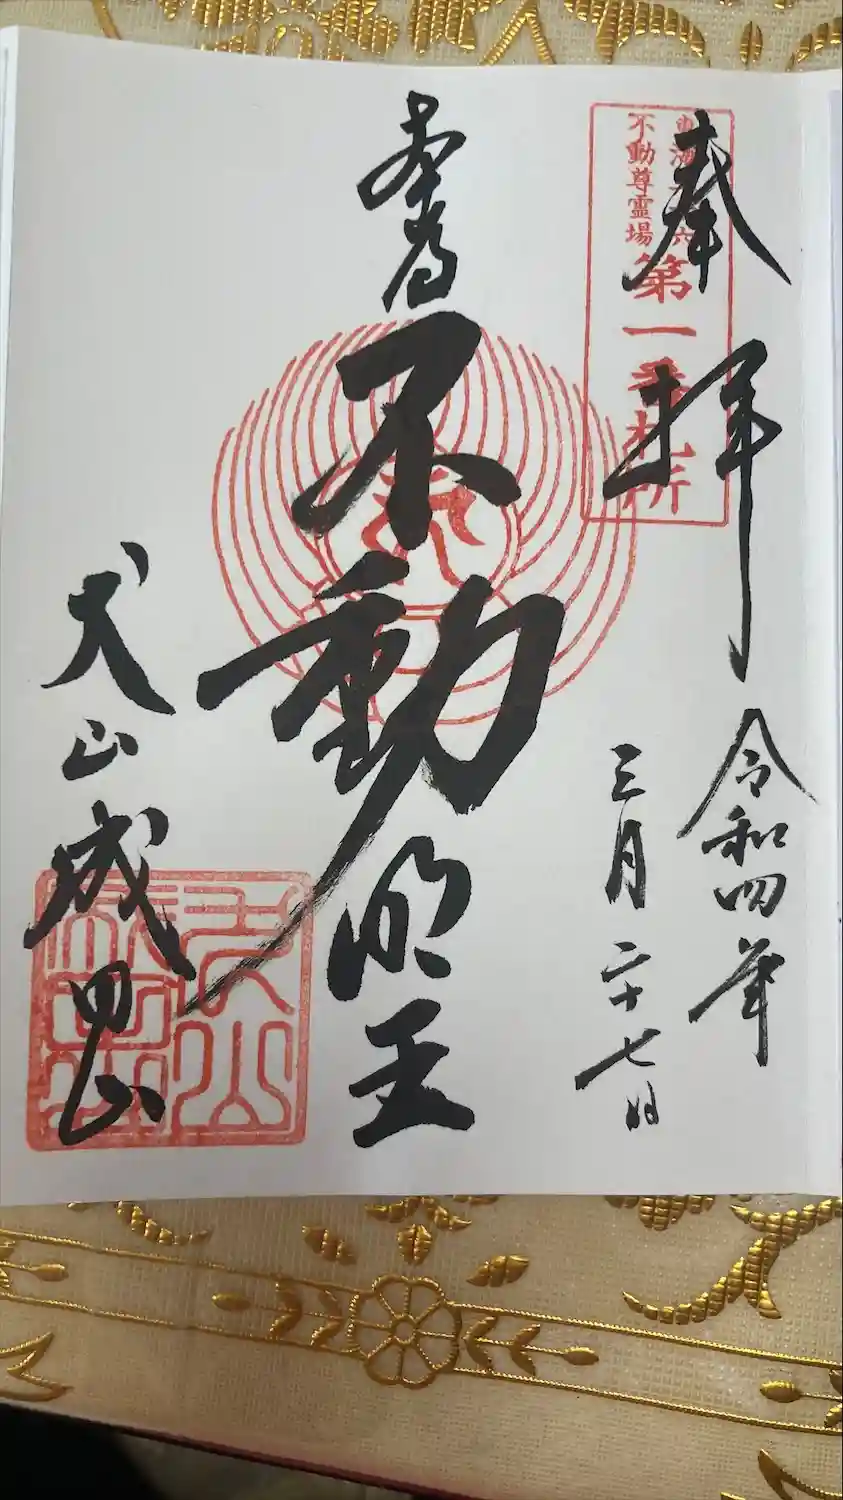 奉拝
令和四年
三月二十七日
不動尊霊場
第一番札所
本尊
不動明王
犬山成田山